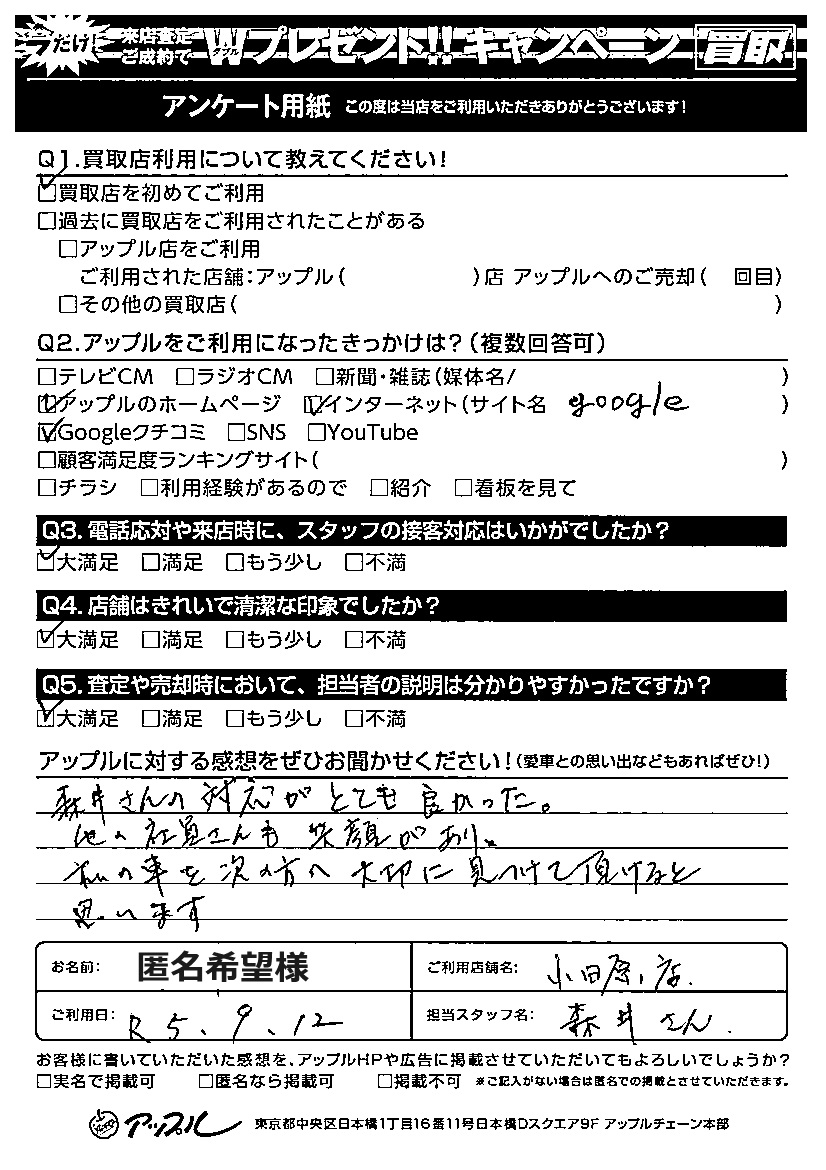 だけ! 来店査定 ご成約で Wダブルプレゼント!! キャンペーン 買取
アンケート用紙 この度は当店をご利用いただきありがとうございます!
Q1.買取店利用について教えてください!
☑買取店を初めてご利用
□過去に買取店をご利用されたことがある
□アップル店をご利用
ご利用された店舗:アップル( )店 アップルへのご売却( 回目)
□その他の買取店( )
Q2.アップルをご利用になったきっかけは?(複数回答可)
□テレビCM □ラジオCM □新聞・雑誌(媒体名/ )
☑アップルのホームページ ☑インターネット(サイト名 google )
☑Googleクチコミ □SNS □YouTube
□顧客満足度ランキングサイト( )
□チラシ □利用経験があるので □紹介 □看板を見て
Q3.電話応対や来店時に、スタッフの接客対応はいかがでしたか?
☑大満足 □満足 □もう少し □不満
Q4.店舗はきれいで清潔な印象でしたか?
☑大満足 □満足 □もう少し □不満
Q5.査定や売却時において、担当者の説明は分かりやすかったですか?
☑大満足 □満足 □もう少し □不満
アップルに対する感想をぜひお聞かせください!(愛車との思い出などもあればぜひ!)
森井さんの対応がとても良かった。
他の社員さんも笑顔があり、
私の車を次の方へ大切に見つけて頂けると
思います
お名前: 匿名希望様 ご利用店舗名: 小田原店.
ご利用日: R5、9、12 担当スタッフ名: 森井さん.
お客様に書いていただいた感想を、アップルHPや広告に掲載させていただいてもよろしいでしょうか?
□実名で掲載可 □匿名なら掲載可 □掲載不可 ※ご記入がない場合は匿名での掲載とさせていただきます。
アップル 東京都中央区日本橋1丁目16番11号日本橋Dスクエア9F アップルチェーン本部